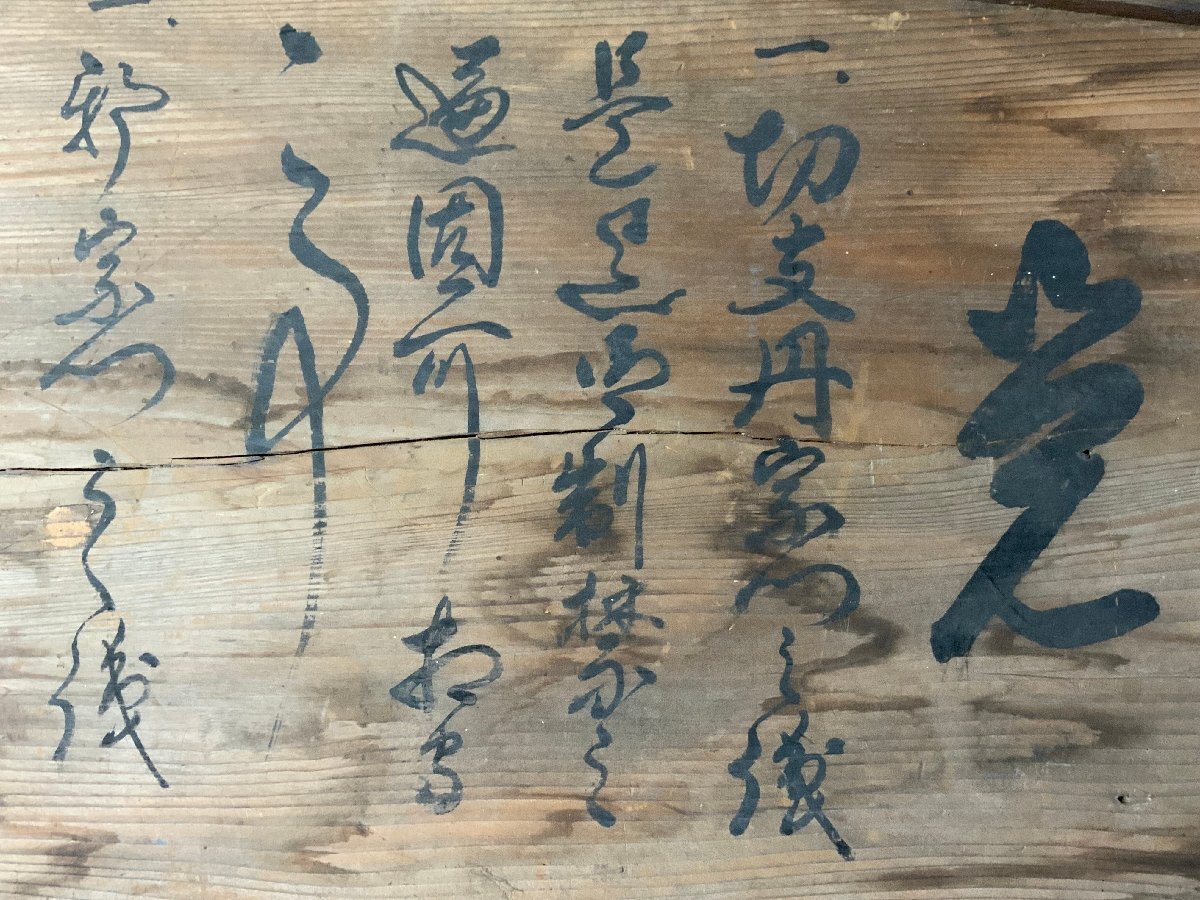 覚
一、切支丹宗門之儀
是迄御制禁之
通固可相守
事
一、邪宗門之儀